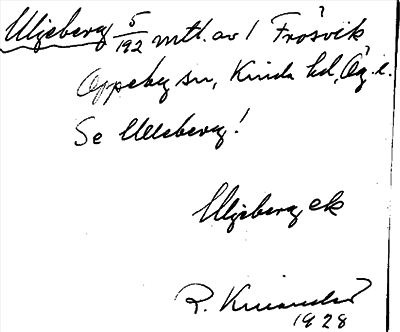 Uljeberg 5/192 mtl. av 1 Frösvik
Oppeby sn, Kinda hd, Ög. l.
Se Ulleberg!
Uljeberg, ek
R.
1928